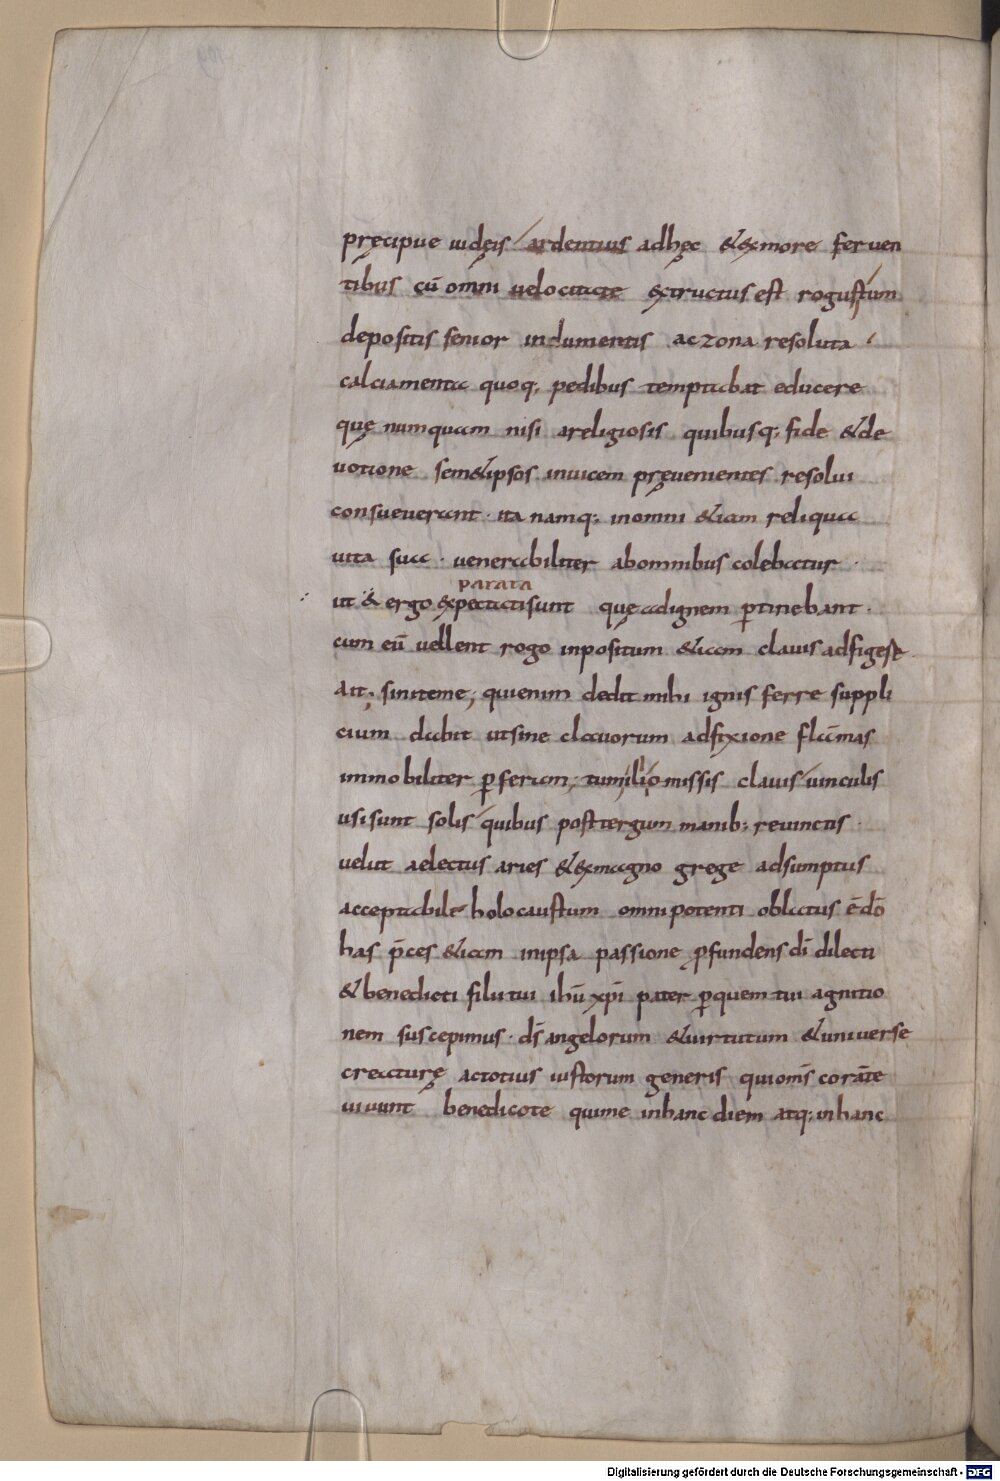 pręcipue iudęis ardentius adhęc & exmore feruen
tibus cū omni uelocitate extructus est rogus tum
depositis senior indumentis ac zona resoluta
calciamenta quoq; pedibus temptabat educere
quę numquam nisi areligiosis quibusq; fide & de
uotione sem&ipsos inuicem pręuenientes resolui
consueuerant · ita namq; inomni &iam reliqua
uita sua · uenerabiliter abomnibus colebatur ·
parata
ut & ergo expectata sunt quę adignem ptinebant ·
cum eū uellent rogo inpositum &iam clauis adfigere
ait; siniteme; quienim dedit mihi ignis ferre suppli
cium dabit utsine clauorum adfixione flāmas
immobiliter pferam; tum illi omissis clauis uinculis
usisunt solis quibus posttergum manib; reuinctis
uelut aelectus aries & exmagno grege adsumptus
acceptabile holocaustum omnipotenti oblatus ē dō
has p̄ces &iam inipsa passione pfundens dī dilecti
& benedicti filii tui ihū xp̄i pater pquem tui agnitio
nem suscepimus · ds̄ angelorum &uirtutum &uniuerse
creaturę actotius iustorum generis quiom̄s corāte
uiuunt benedicote quime inhanc diem atq; inhanc
Digitalisierung gefördert durch die Deutsche Forschungsgemeinschaft - DFG